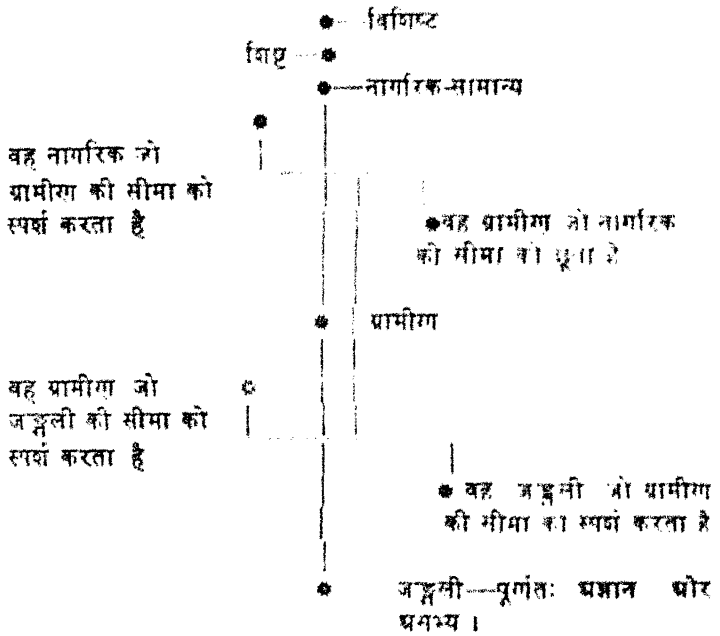 विशिष्ट
शिष्ट
नागरिक-सामान्य
वह नागरिक जो
ग्रामीण की सीमा को
स्पर्श करता है
वह ग्रामीण जो नागरिक
की सीमा को छूता है
ग्रामीण
वह ग्रामीण जो
जङ्गली की सीमा को
स्पर्श करता है
वह जङ्गली जो ग्रामीण
की सीमा का स्पर्श करता है
जङ्गली—पूर्णतः अज्ञान और
असभ्य ।